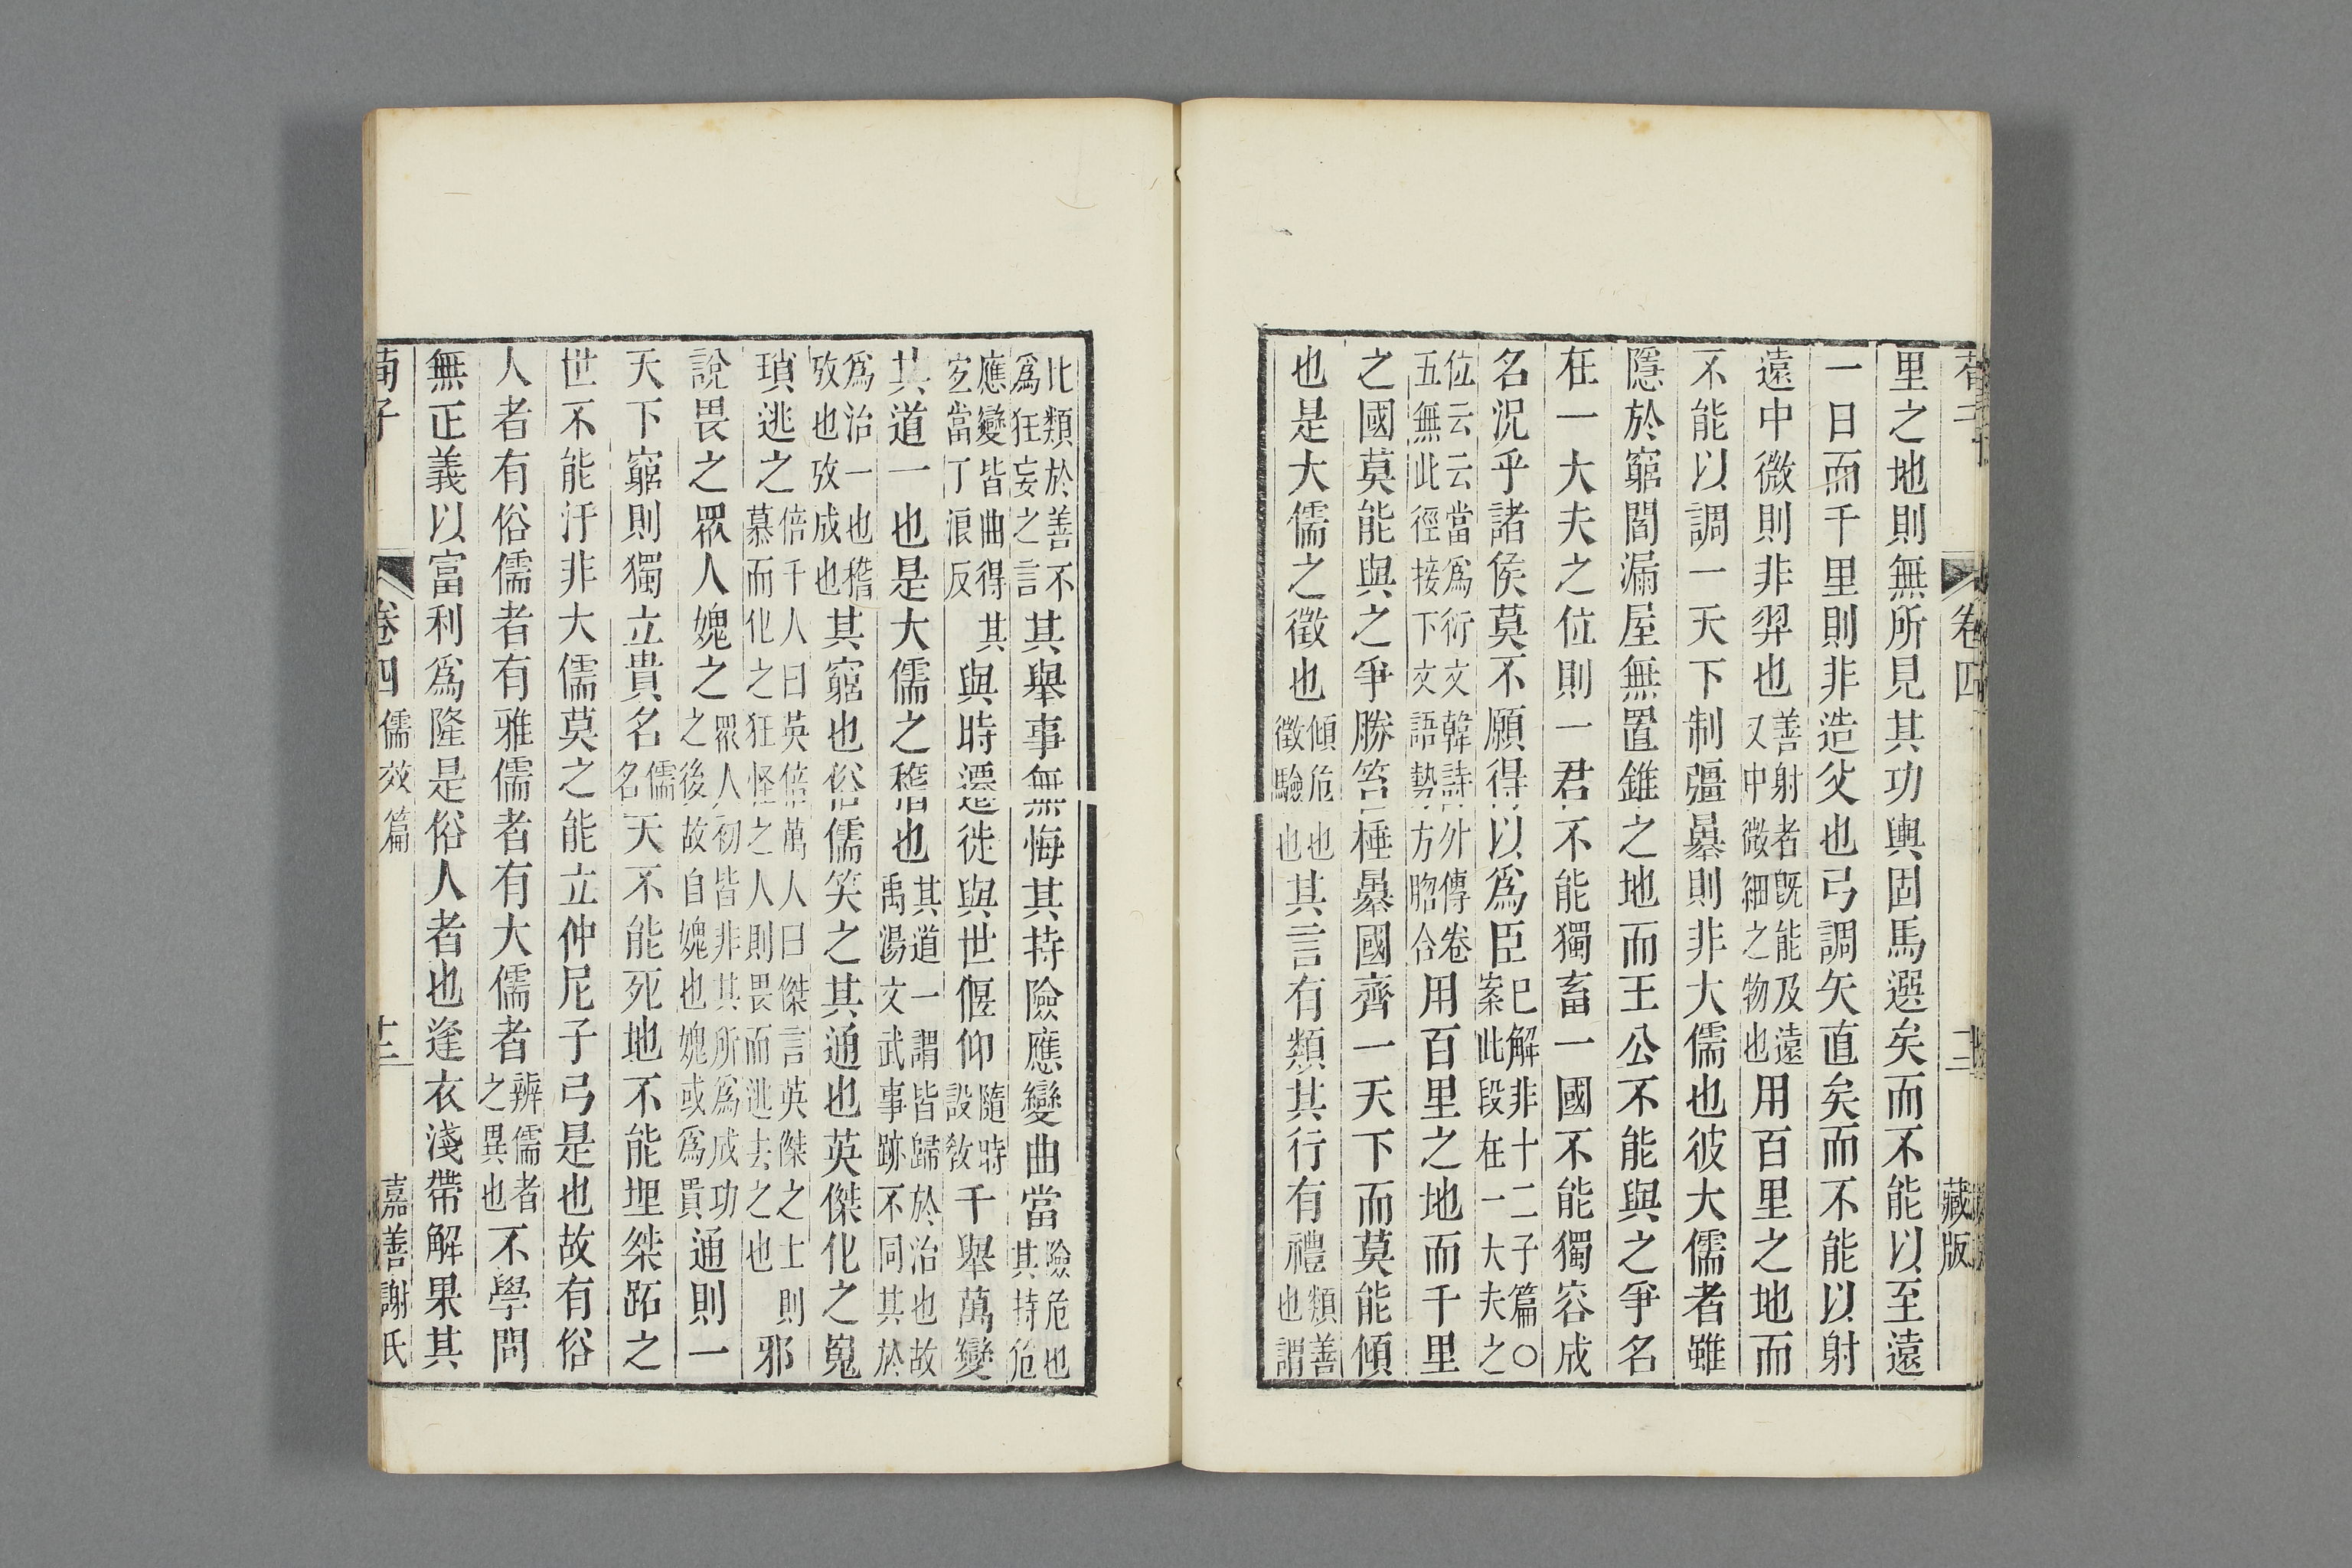 荀子
卷四
藏版
里之地則無所見其功輿固馬選矣而不能以至遠
一日而千里則非造父也弓調矢直矣而不能以射
遠中微則非羿也善射者既能及遠又中微細之物也用百里之地而
不能以調一天下制彊暴則非大儒也彼大儒者雖
隱於窮閻漏屋無置錐之地而王公不能與之爭名
在一大夫之位則一君不能獨畜一國不能獨容成
名況乎諸侯莫不願得以爲臣已解非十二子篇〇案此段在一大夫之
位云云當爲衍文韓詩外傳卷五無此徑接下文語勢方脗合用百里之地而千里
之國莫能與之爭勝笞棰暴國齊一天下而莫能傾
也是大儒之徵也傾危也徵驗也其言有類其行有禮類善也謂
比類於善不爲狂妄之言其舉事無悔其持險應變曲當險危也其持危
應變皆曲得其宐當丁浪反與時遷徙與世偃仰隨時設敎千舉萬變
其道一也是大儒之稽也其道一謂皆歸於治也故禹湯文武事跡不同其於
爲治一也稽攷也攷成也其窮也俗儒笑之其通也英傑化之嵬
瑣逃之倍千人曰英倍萬人曰傑言英傑之士則慕而化之狂怪之人則畏而逃去之也邪
說畏之眾人媿之眾人初皆非其所爲成功之後故自媿也媿或爲貴通則一
天下窮則獨立貴名儒名天不能死地不能埋桀跖之
世不能汙非大儒莫之能立仲尼子弓是也故有俗
人者有俗儒者有雅儒者有大儒者辨儒者之異也不學問
無正義以富利爲隆是俗人者也逢衣淺帶解果其
荀子
卷四
儒效篇
十三
嘉善謝氏